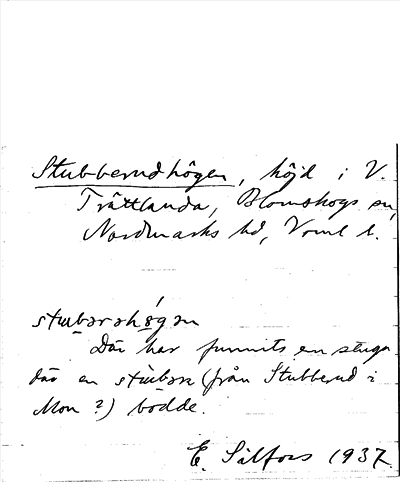 Stubberudhögen, höjd i V.
Trättlanda, Blomskogs sn,
Nordmarks hd, Verml l.
stubərəhǿgən
Där har funnits en stuga
där en stubəre (från Stubberud i
Mon ?) bodde.
E. Silfors 1937.